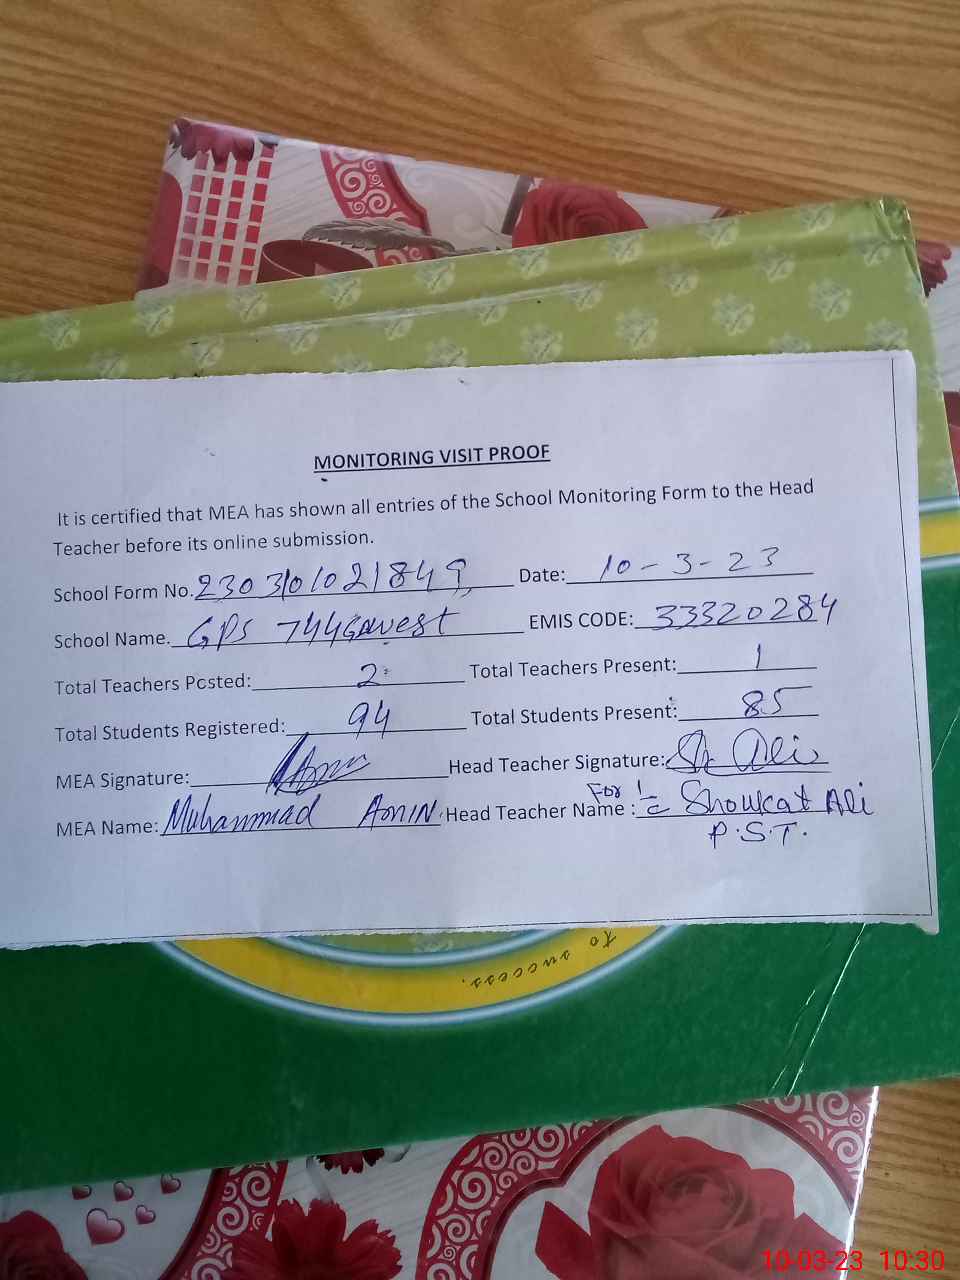 MONITORING VISIT PROOF
It is certified that MEA has shown all entries of the School Monitoring Form to the Head
Teacher before its online submission.
School Form No. 230301021849 Date: 10-3-23
School Name. GPS 744 EMIS CODE: 33320284
Total Teachers Posted: 2 Total Teachers Present: 1
Total Students Registered: 94 Total Students Present: 85
MEA Signature: Amin Head Teacher Signature: Sh Ali
MEA Name: Muhammad Amin. Head Teacher Name : For I/C Showkat Ali
P.S.T.
to success.
10-03-23 10:30